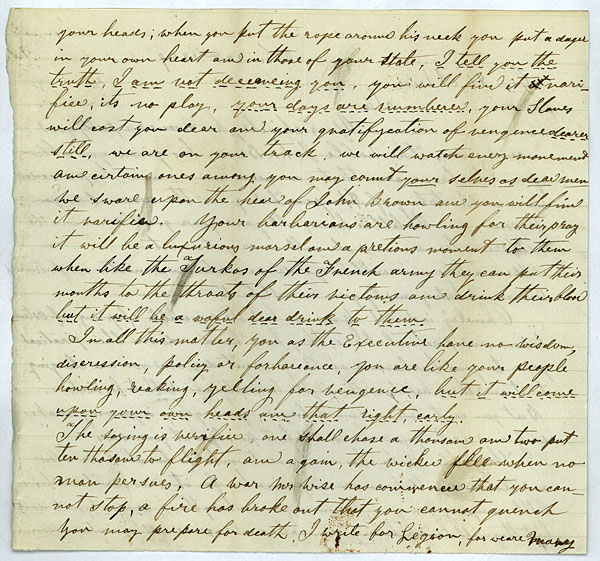 your heads; when you put the rope around his neck you put a dager
in your own heart am in those of your State, I tell you the
truth, I am not deceiveing you, you will fim it varri-
fice, its no play, your days are numberes, your Slaves
will cost you dear am your gratifycation of vengence dearer
still, we are on your track, we will watch evry movement
am certain ones among you may count your selves as dear men
We sware upon the hear of John Brown am you will fim
it varifie. Your barbarians are howling for their pray
it will be a luxurious morsel am a pretious moment to them
when like the Turkos of the French army they can put their
mouths to the throats of theirs victoms am drink their bloo
but it will be a woful dear drink to them
In all this matter, you as the Executive have no wisdom,
discression, policy or forbarance, you are like your people
howling, reaking, yelling for vengence, but it will come
upon your own heads am that right early.
The saying is verifie, one shall chase a thousam am two put
ten thosam to flight, am again, the wicker flee when no
man persues, A war Mr Wise has commence that you can-
not stop, a fire has broke out that you cannot quench
You may prepare for death, I write for Legion, for we are many